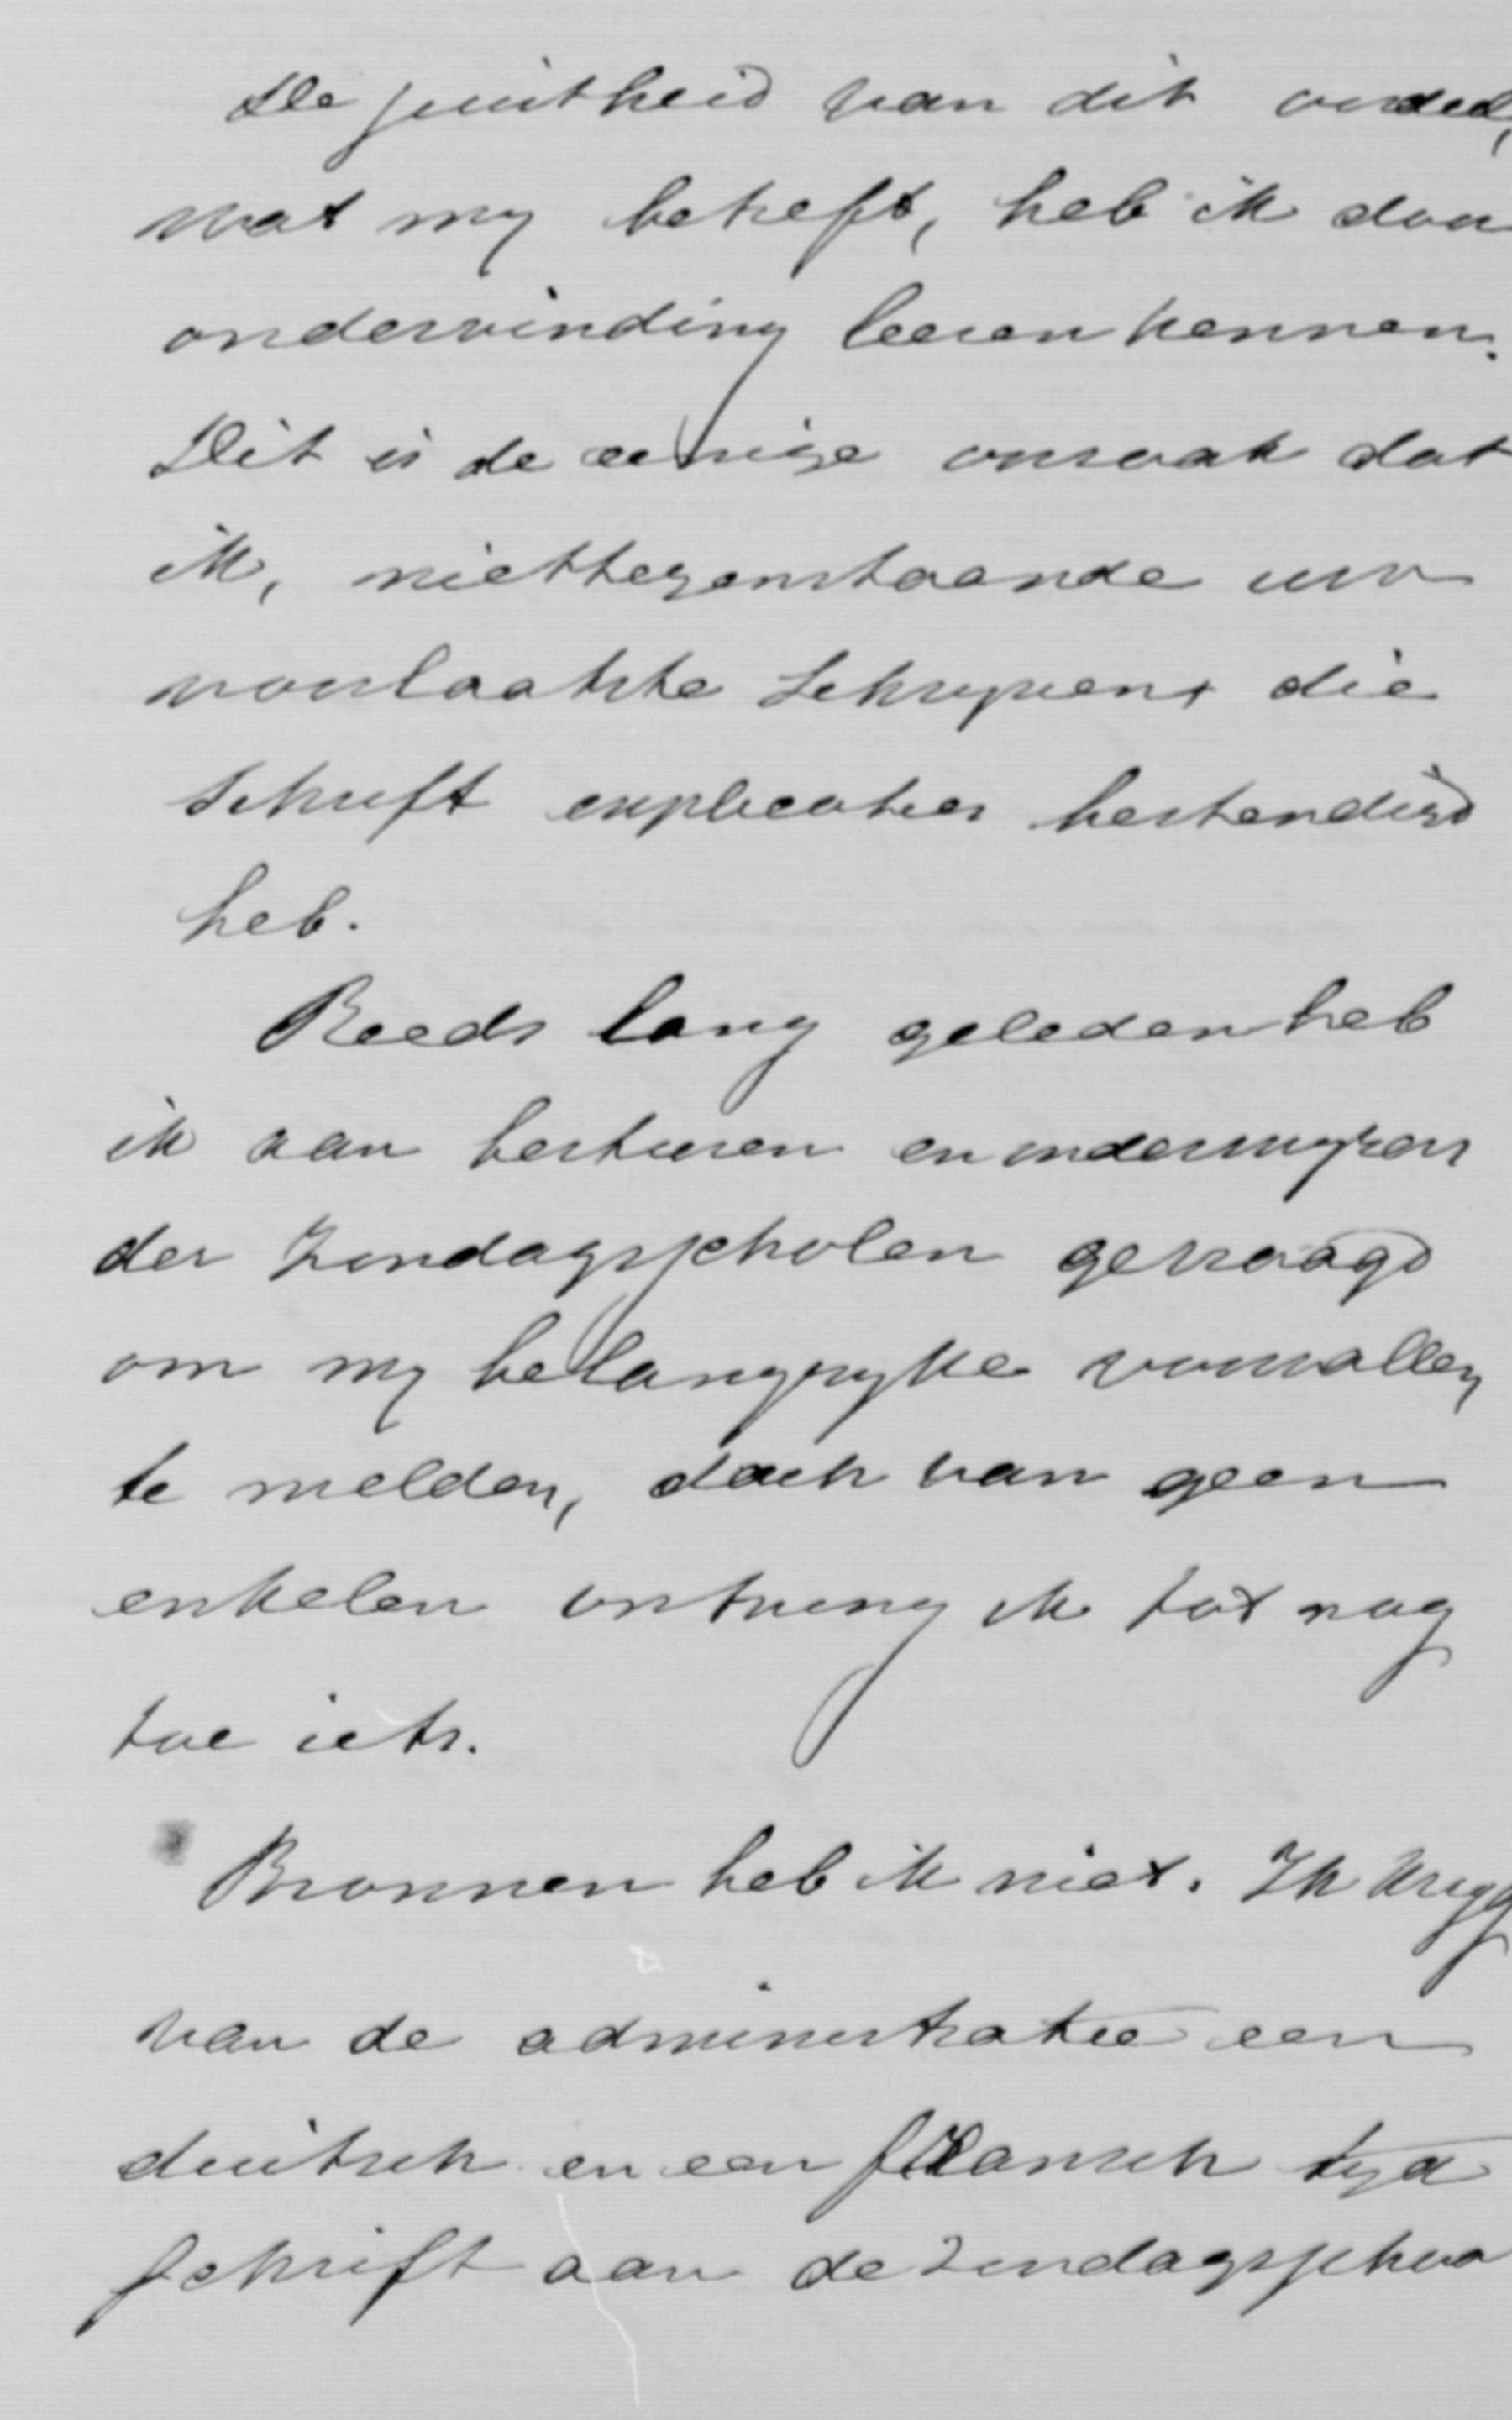 De juistheid van dit oordeel,
wat my betreft, heb ik door
ondervinding leeren kennen.
Dit is de eenige oorzaak dat
ik, niettegenstaande uw
voorlaatste schryven, die
schrift explicaties bestendigd
heb.
Reeds lang geleden heb
ik aan besturen en onderwyzers
der Zondagsscholen gevraagd
om my belangrykke voorvallen
te melden, doch van geen
enkelen ontving ik tot nog
toe iets.
Bronnen heb ik niet. Ik kryg
van de administratie een
duitsch en een fransch tyd
schrift aan de zondagsschoo